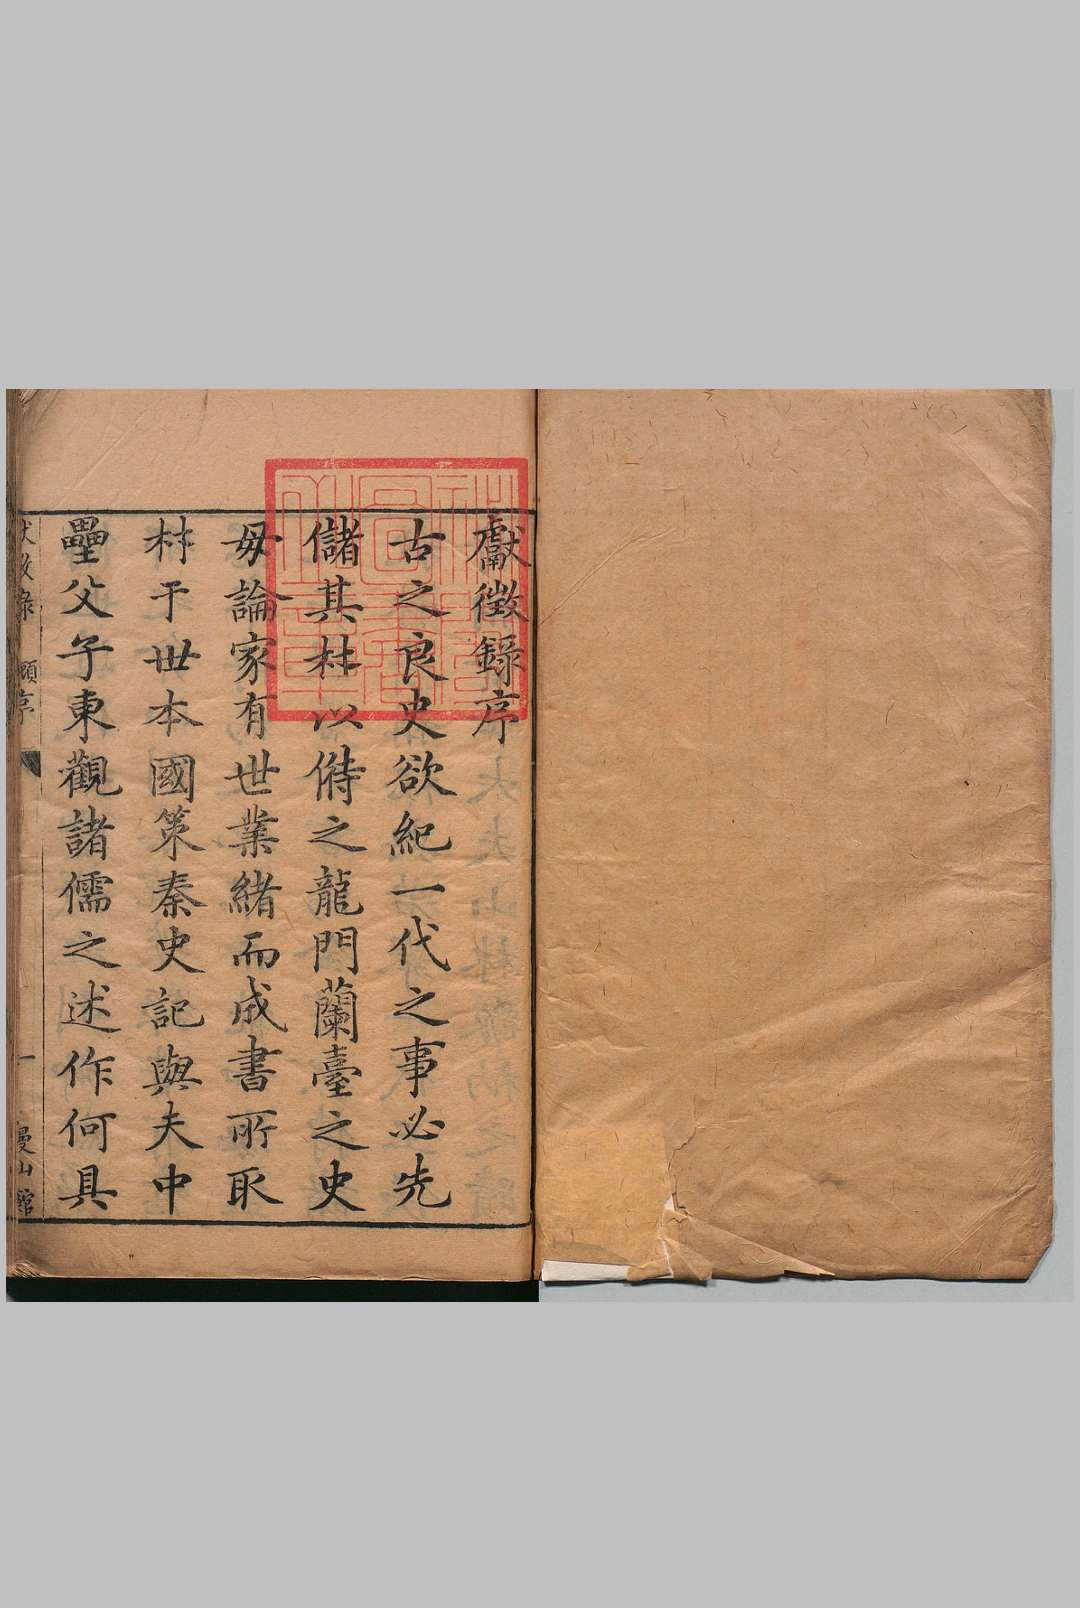 獻徵錄序
古之良史欲紀一代之事必先
儲其材以偫之龍門蘭臺之史
毋論家有世業緒而成書所取
材于世本國策秦史記與夫中
壘父子東觀諸儒之述作何具
獻徵錄 顧序 一 曼山館